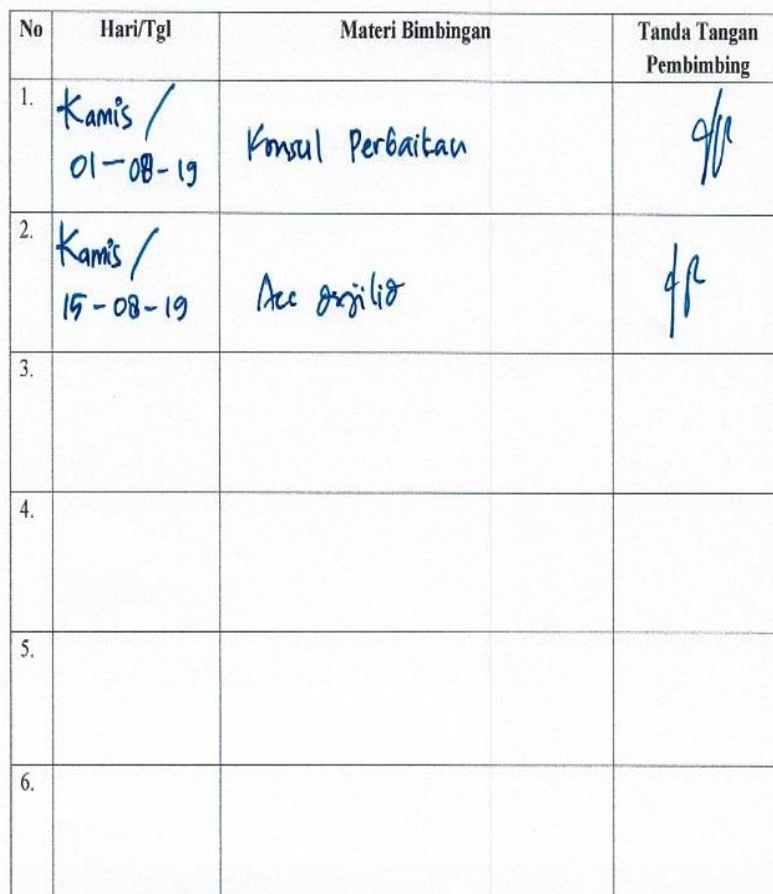 No Hari/Tgl Materi Bimbingan Tanda Tangan
Pembimbing
1. Kamis /
01-08-19 Konsul Perbaikan
2. Kamis /
15-08-19 Acc dijilid
3.
4.
5.
6.